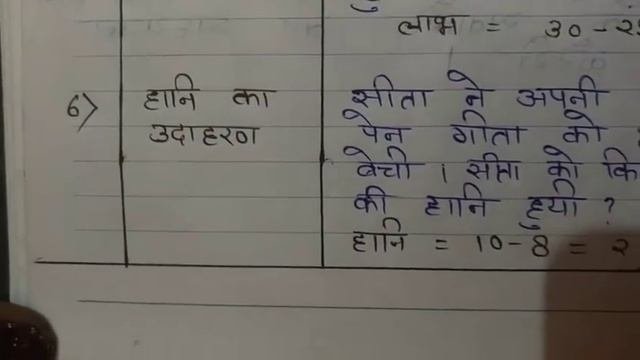 लाभ = 30 - 2
6> हानि का उदाहरण
सीता ने अपनी
पेन गीता को
बेची । सीता को कि
की हानि हुयी ?
हानि = 10 - 8 = 2